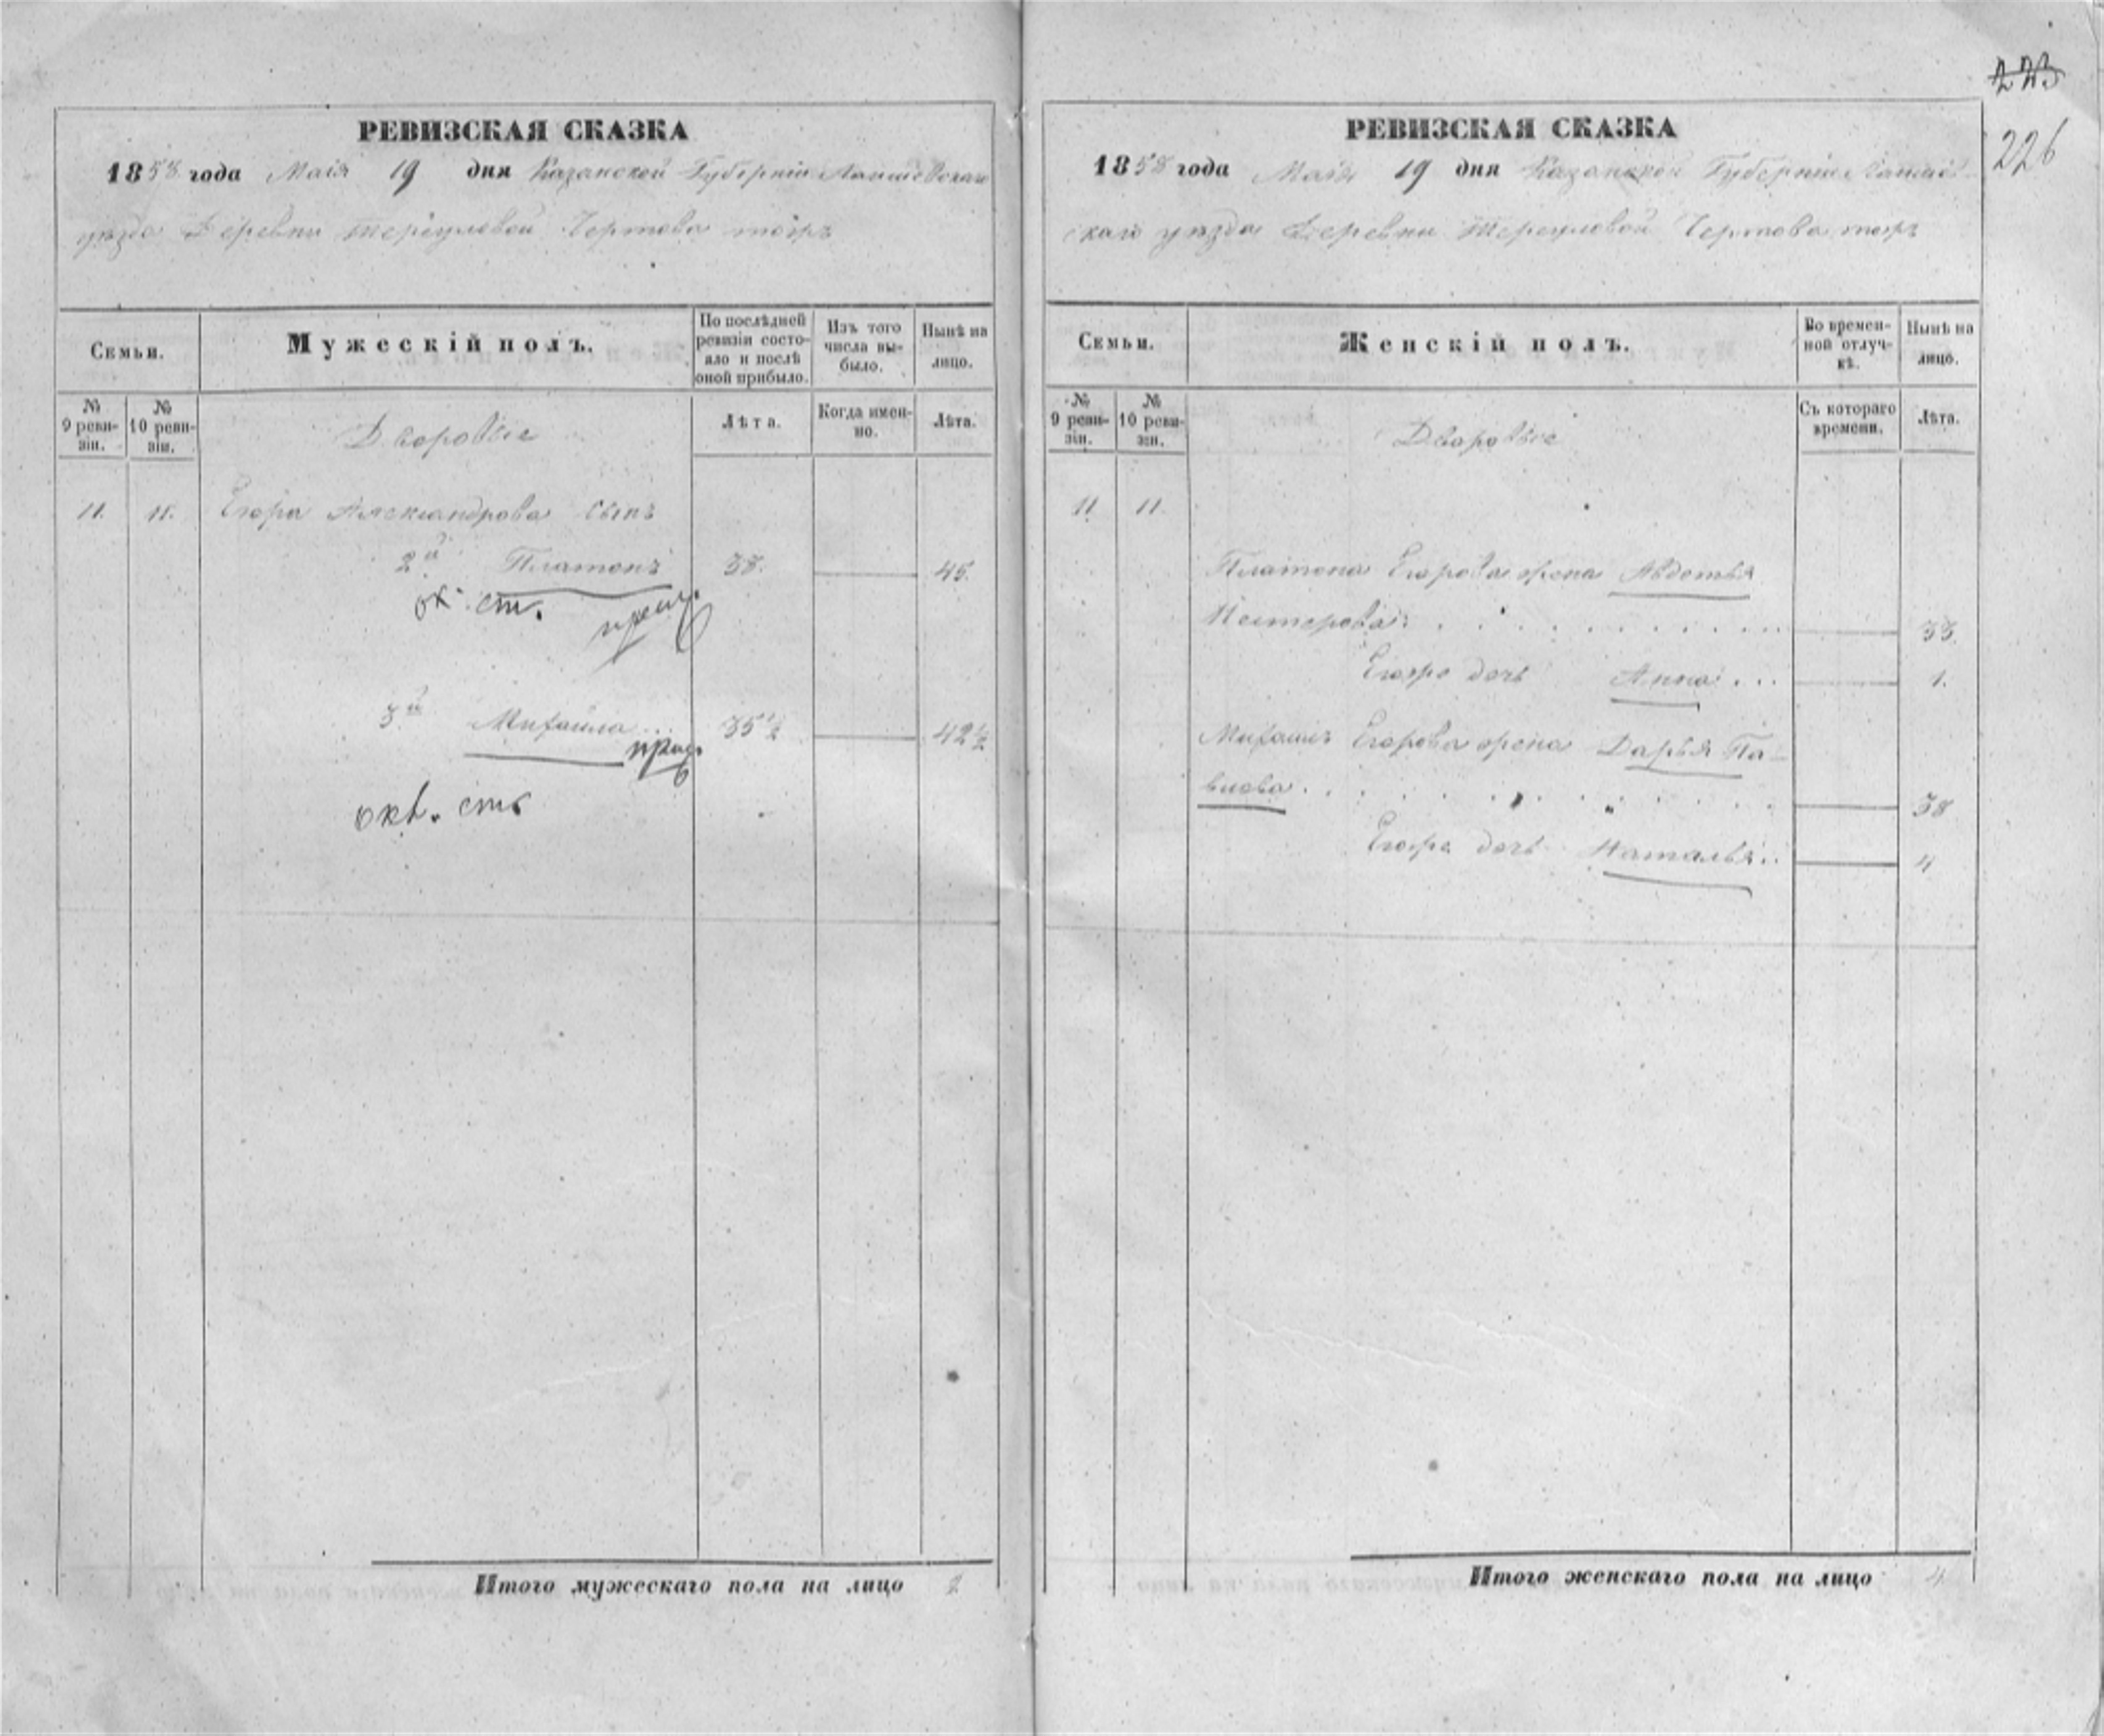 223
226
РЕВИЗСКАЯ СКАЗКА
1858 года Маія 19 дня Казанской Губерніи Лаишевскаго
уѣзда Деревни Чертова тожъ
Семьи.
Мужескій полъ.
По послѣдней ревизіи состояло и послѣ оной прибыло.
Изъ того числа выбыло.
Нынѣ на лицо.
№ 9 ревизіи.
№ 10 ревизіи.
Дворовые
Лѣта.
Когда именно.
Лѣта.
11. 11. Егора Александрова сынъ
2й Платонъ 38. 45.
ок. ст.
3й Михайла ... 35½ 42½
окл. ст.
Итого мужескаго пола на лицо 2
РЕВИЗСКАЯ СКАЗКА
1858 года Маія 19 дня Казанской Губерніи Лаишев-
скаго уѣзда Деревни Чертова тожъ
Семьи.
Женскій полъ.
Во временной отлучкѣ.
Нынѣ на лицо.
№ 9 ревизіи.
№ 10 ревизіи.
Дворовые
Съ котораго времени.
Лѣта.
11 11.
Платона Егорова жена Авдотья
Нестерова 33.
Егоже дочь Анна ... 1.
Михайлы Егорова жена Дарья Па-
влова 38
Егоже дочь Наталья .. 4
Итого женскаго пола на лицо 4